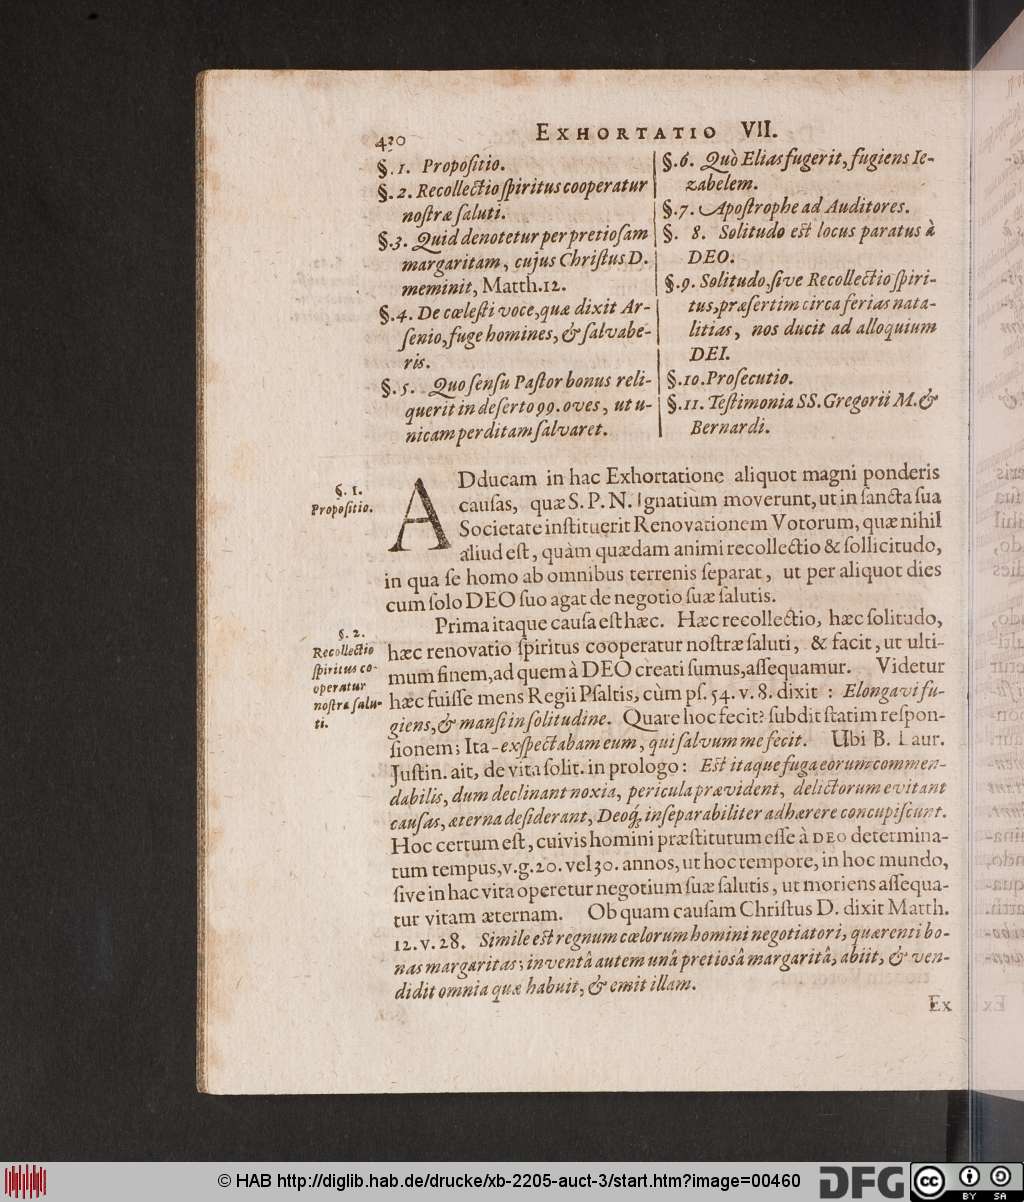 420
EXHORTATIO VII.
§.1. Propoſitio.
§.2. Recollectio ſpiritus cooperatur
noſtræ ſaluti.
§.3. Quid denotetur per pretioſam
margaritam, cujus Chriſtus D.
meminit, Matth.12.
§.4. De cœleſti voce, quæ dixit Ar-
ſenio, fuge homines, & ſalvabe-
ris.
§.5. Quo ſenſu Paſtor bonus reli-
querit in deſerto 99. oves, ut u-
nicam perditam ſalvaret.
§.6. Quò Elias fugerit, fugiens Ie-
zabelem.
§.7. Apoſtrophe ad Auditores.
§. 8. Solitudo eſt locus paratus à
DEO.
§.9. Solitudo, ſive Recollectio ſpiri-
tus, præſertim circa ferias nata-
litias, nos ducit ad alloquium
DEI.
§.10. Proſecutio.
§.11. Teſtimonia SS. Gregorii M. &
Bernardi.
§. 1.
Propoſitio.
ADducam in hac Exhortatione aliquot magni ponderis
cauſas, quæ S. P. N. Ignatium moverunt, ut in ſancta ſua
Societate inſtituerit Renovationem Votorum, quæ nihil
aliud eſt, quàm quædam animi recollectio & ſollicitudo,
in qua ſe homo ab omnibus terrenis ſeparat, ut per aliquot dies
cum ſolo DEO ſuo agat de negotio ſuæ ſalutis.
§. 2.
Recollectio
ſpiritus co-
operatur
noſtræ ſalu-
ti.
Prima itaque cauſa eſt hæc. Hæc recollectio, hæc ſolitudo,
hæc renovatio ſpiritus cooperatur noſtræ ſaluti, & facit, ut ulti-
mum finem, ad quem à DEO creati ſumus, aſſequamur. Videtur
hæc fuiſſe mens Regii Pſaltis, cùm pſ. 54. v. 8. dixit : Elongavi fu-
giens, & manſi in ſolitudine. Quare hoc fecit? ſubdit ſtatim reſpon-
ſionem; Ita-exſpectabam eum, qui ſalvum me fecit. Ubi B. Laur.
Juſtin. ait, de vita ſolit. in prologo : Eſt itaque fuga eorum commen-
dabilis, dum declinant noxia, pericula prævident, delictorum evitant
cauſas, æterna deſiderant, Deoq́; inſeparabiliter adhærere concupiſcunt.
Hoc certum eſt, cuivis homini præſtitutum eſſe à DEO determina-
tum tempus, v.g. 20. vel 30. annos, ut hoc tempore, in hoc mundo,
ſive in hac vita operetur negotium ſuæ ſalutis, ut moriens aſſequa-
tur vitam æternam. Ob quam cauſam Chriſtus D. dixit Matth.
12. v. 28. Simile eſt regnum cœlorum homini negotiatori, quærenti bo-
nas margaritas; inventâ autem unâ pretioſâ margaritâ, abiit, & ven-
didit omnia quæ habuit, & emit illam.
Ex
© HAB http://diglib.hab.de/drucke/xb-2205-auct-3/start.htm?image=00460
DFG
cc BY SA